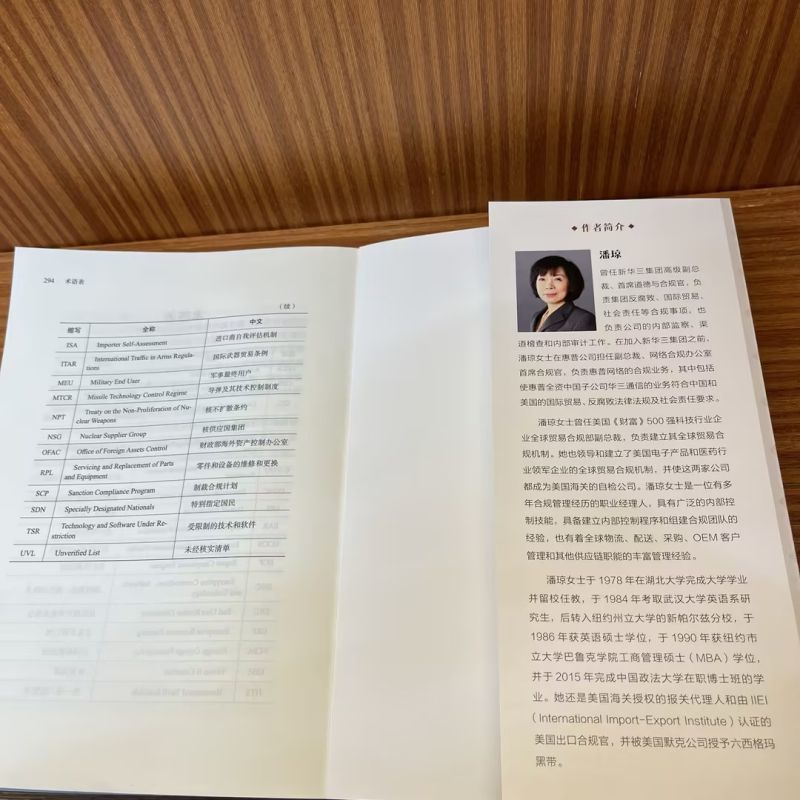 294 术语表
（续）
缩写 全称 中文
ISA Importer Self-Assessment 进口商自我评估机制
ITAR International Traffic in Arms Regula-
tions 国际武器贸易条例
MEU Military End User 军事最终用户
MTCR Missile Technology Control Regime 导弹及其技术控制制度
NPT Treaty on the Non-Proliferation of Nu-
clear Weapons 核不扩散条约
NSG Nuclear Supplier Group 核供应国集团
OFAC Office of Foreign Assets Control 财政部海外资产控制办公室
RPL Servicing and Replacement of Parts
and Equipment 零件和设备的维修和更换
SCP Sanction Compliance Program 制裁合规计划
SDN Specially Designated Nationals 特别指定国民
TSR Technology and Software Under Re-
striction 受限制的技术和软件
UVL Unverified List 未经核实清单
作者简介
潘琼
曾任新华三集团高级副总
裁、首席道德与合规官，负
责集团反腐败、国际贸易、
社会责任等合规事项，也
负责公司的内部监察、渠
道稽查和内部审计工作。在加入新华三集团之前，
潘琼女士在惠普公司担任副总裁、网络合规办公室
首席合规官，负责惠普网络的合规业务，其中包括
使惠普全资中国子公司华三通信的业务符合中国和
美国的国际贸易、反腐败法律法规及社会责任要求。
潘琼女士曾任美国《财富》500 强科技行业企
业全球贸易合规部副总裁，负责建立其全球贸易合
规机制。她也领导和建立了美国电子产品和医药行
业领军企业的全球贸易合规机制，并使这两家公司
都成为美国海关的自检公司。潘琼女士是一位有多
年合规管理经历的职业经理人，具有广泛的内部控
制技能，具备建立内部控制程序和组建合规团队的
经验，也有着全球物流、配送、采购、OEM 客户
管理和其他供应链职能的丰富管理经验。
潘琼女士于 1978 年在湖北大学完成大学学业
并留校任教，于 1984 年考取武汉大学英语系研
究生，后转入纽约州立大学的新帕尔兹分校，于
1986 年获英语硕士学位，于 1990 年获纽约市
立大学巴鲁克学院工商管理硕士（MBA）学位，
并于 2015 年完成中国政法大学在职博士班的学
业。她还是美国海关授权的报关代理人和由 IIEI
（International Import-Export Institute）认证的
美国出口合规官，并被美国默克公司授予六西格玛
黑带。